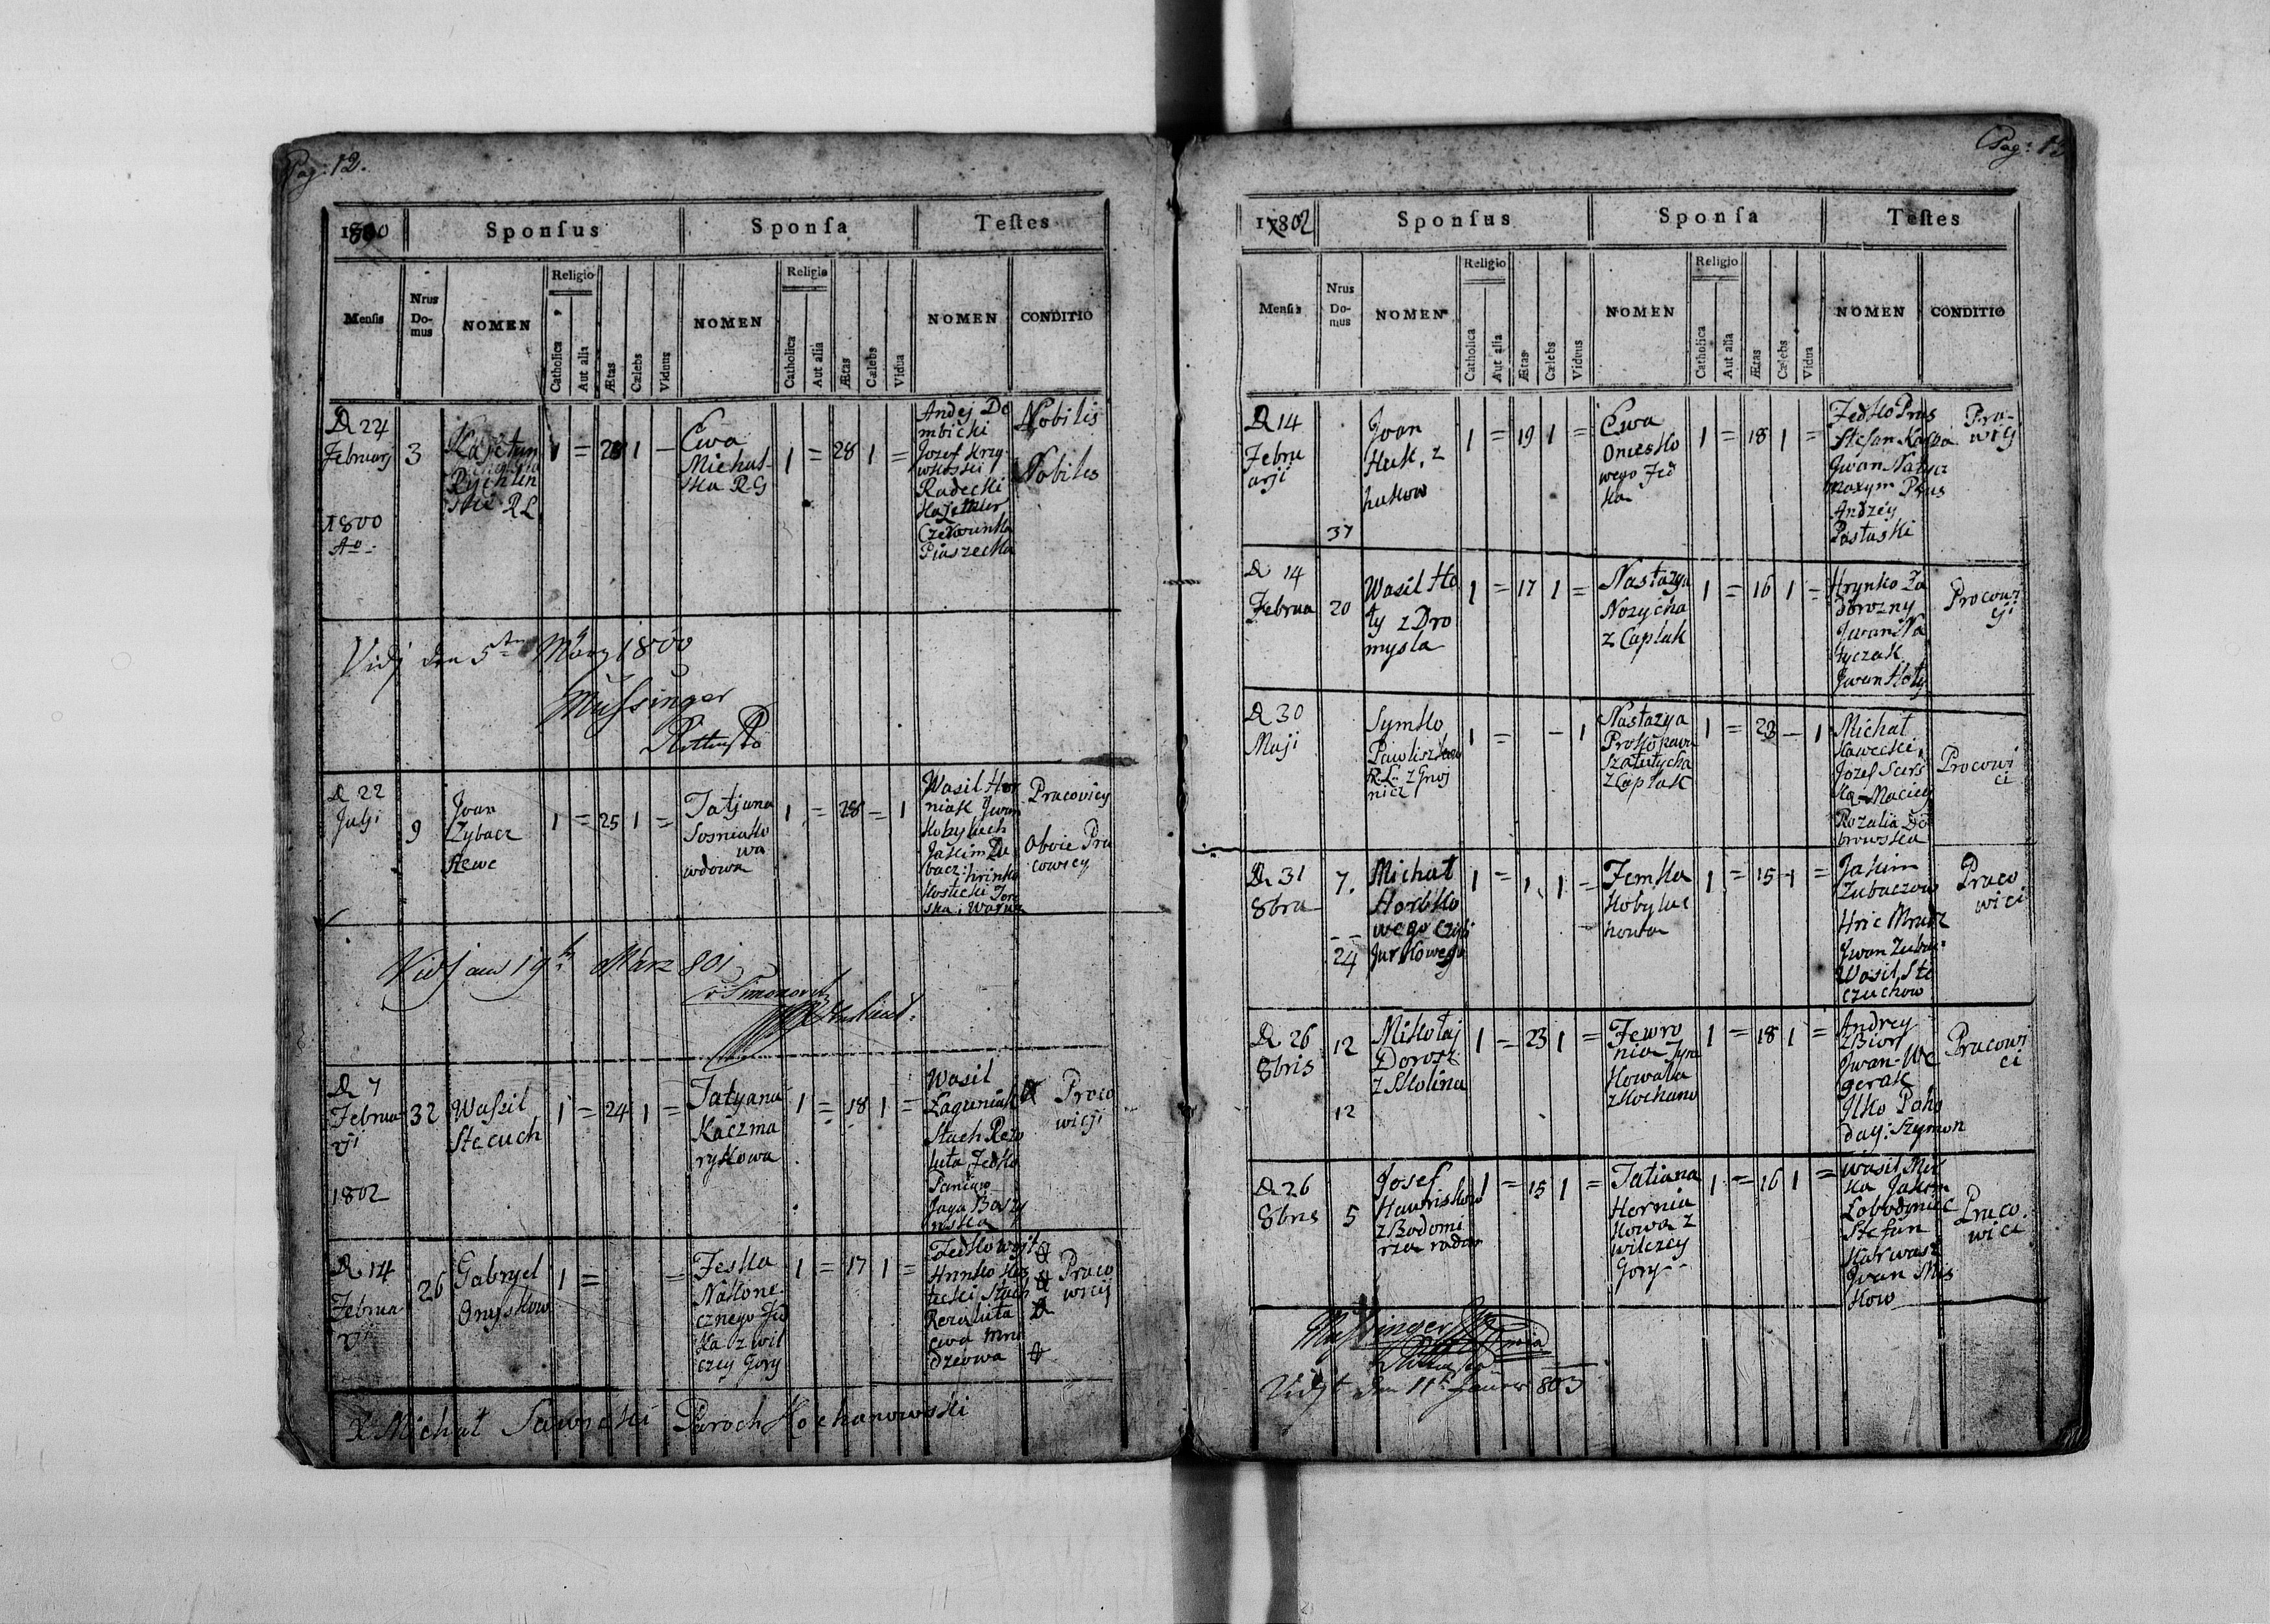 Pag: 12.
1800 Sponſus Sponſa Teſtes
Menſis Nrus Do- mus NOMEN Religio Catholica Aut alia Ætas Cælebs Viduus NOMEN Religio Catholica Aut alia Ætas Cælebs Vidua NOMEN CONDITIO
D 22
Februarj
1800
Ao
3
Kajetan
Rychlin
ski R L
1 = 28 1 —
Ewa
Michal-
ska R G
1 = 28 1 =
Andej De
mbicki
Jozef Krzy-
wkoski
Radecki
Piaszecka
Nobilis
Nobiles
Vidj den 5ten März 1800
Mussinger
D 22
Julji
9
Jvan
Zybacz
Szewc
1 = 25 1 =
Tatjana
Sosniako
wa
wdowa
1 = 28 = 1
Wasil Hor
niak Jwan
Kobyluch
Jakim Zu
bacz: hrinko
Kostecki
Pracovicy
Oboie Pra
cowicy
Vidj am 19t März 801
D 7
Februa
rji
1802
32
Wasil
Stecuch
1 = 24 1 =
Tatyana
Kaczma
rykowa
1 = 18 1 =
Wasil
Laguniak
Stach Rezo
luta Fedko
Paniw
Jaga Baszy
nska
Praco
wicji
D 14
Februa
rji
26
Gabryel
Onyskow
1 = =
Feska
Nakone
cznego Fed
ka z wil
czey Gory
1 = 17 1 =
Fedko woyt
Hrinko Kos
tecki Stach
Rezoluta
Ewa
Praco
wicij
X Michał Sawicki Paroch Kochanowski
Pag: 13
1802 Sponſus Sponſa Teſtes
Menſis Nrus Do- mus NOMEN Religio Catholica Aut alia Ætas Cælebs Viduus NOMEN Religio Catholica Aut alia Ætas Cælebs Vidua NOMEN CONDITIO
D 14
Febru
arji
37
Jvan
Huk, z
hukow
1 = 19 1 =
Ewa
Onesko
wego Fed
ka
1 = 18 1 =
Fedko Prus
Stefan
Jwan Natycz
Maxym Prus
Andrey
Pastuski
Pra-
wicj
D 14
Februa
20
Wasil Ho
ty z Dro
mysla
1 = 17 1 =
Nastazya
Nozycha
z Caplak
1 = 16 1 =
Hrynko Za
dorozny
Jwan Na
tyczak
Jwan Hoty
Procowi
cji
D 30
Maji
Symko
Pawliszkow
R. L. z Gnoj
nicz
1 = — 1
Nastazya
Prokopawa
szalutycha
z Caplak
1 = 28 — 1
Michał
Kawecki,
Jozef
Maciey
Rozalia Do
browska
Procowi
ci
D 31
8bra
7.
24
Michał
Horbko
wego czyli
Jurkowego
1 = 1 =
Femka
Kobyluc
howa
1 = 15 1 =
Jakim
Zubaczow
Hric
Jwan Zubacz
Wasil Ste
czuchow
Praco
wici
D 26
8bris
12
12
Mikołaj
Dorosz
z Skolina
1 = 23 1 =
Fewro
nia
Kowala
z Kochano
1 = 18 1 =
Andrey
Jwan We
gerak
Jlko
Szymon
Pracowi
ci
D 26
8bris
5
Josef
Hawriskow
z Bodomi
rza rodow
1 = 15 1 =
Tatiana
Hernia
kowa z
wilczey
Gory
1 = 16 1 =
Wasil
Jakim
Lobodyniec
Stefan
Karwasz
Jvan Mis
kow
Praco
wici
Mussinger
Vidjt den 11t Jänner 803